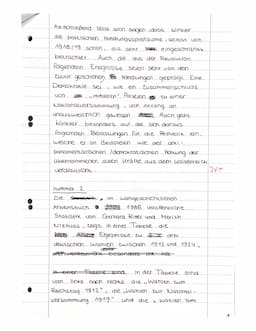 Abschließend lässt sich sagen dass Winkler
die politischen Handlungsspielräume, selbst von
1918/19 schon, als sehr eingeschränkt
betrachtet. Auch die aus der Revolution
folgenden Ereignisse seien sehr von den
zuvor geschehenen Handlungen geprägt. Eine
Demokratie sei, wie ein Zusammenschluss
von "mittleren" Parteien zu einer
Nationalversammlung, von Anfang an
unausweichlich gewesen. Auch geht
Winkler besonders auf die sich daraus
folgenden Belastungen für die Republik ein,
welche er an Beispielen wie der anti-
parlamentarischen/demokratischen Haltung der
übernommenen alten Kräfte aus dem Kaiserreich
verdeutlicht.
nummer 2.
Die im
Arbeitsbuch 1986
Statistik von Gerhard A. Ritter und Merith
Niehuss, zeigt in einer Tabelle die
Ergebnisse zu drei
deutschen Wahlen zwischen 1912 und 1924,
in einer Tabelle sind. In der Tabelle sind
von links nach rechts die "Wahlen zum
Reichstag 1912", die "Wahlen zur National-
versammlung 1919" und die "Wahlen zum